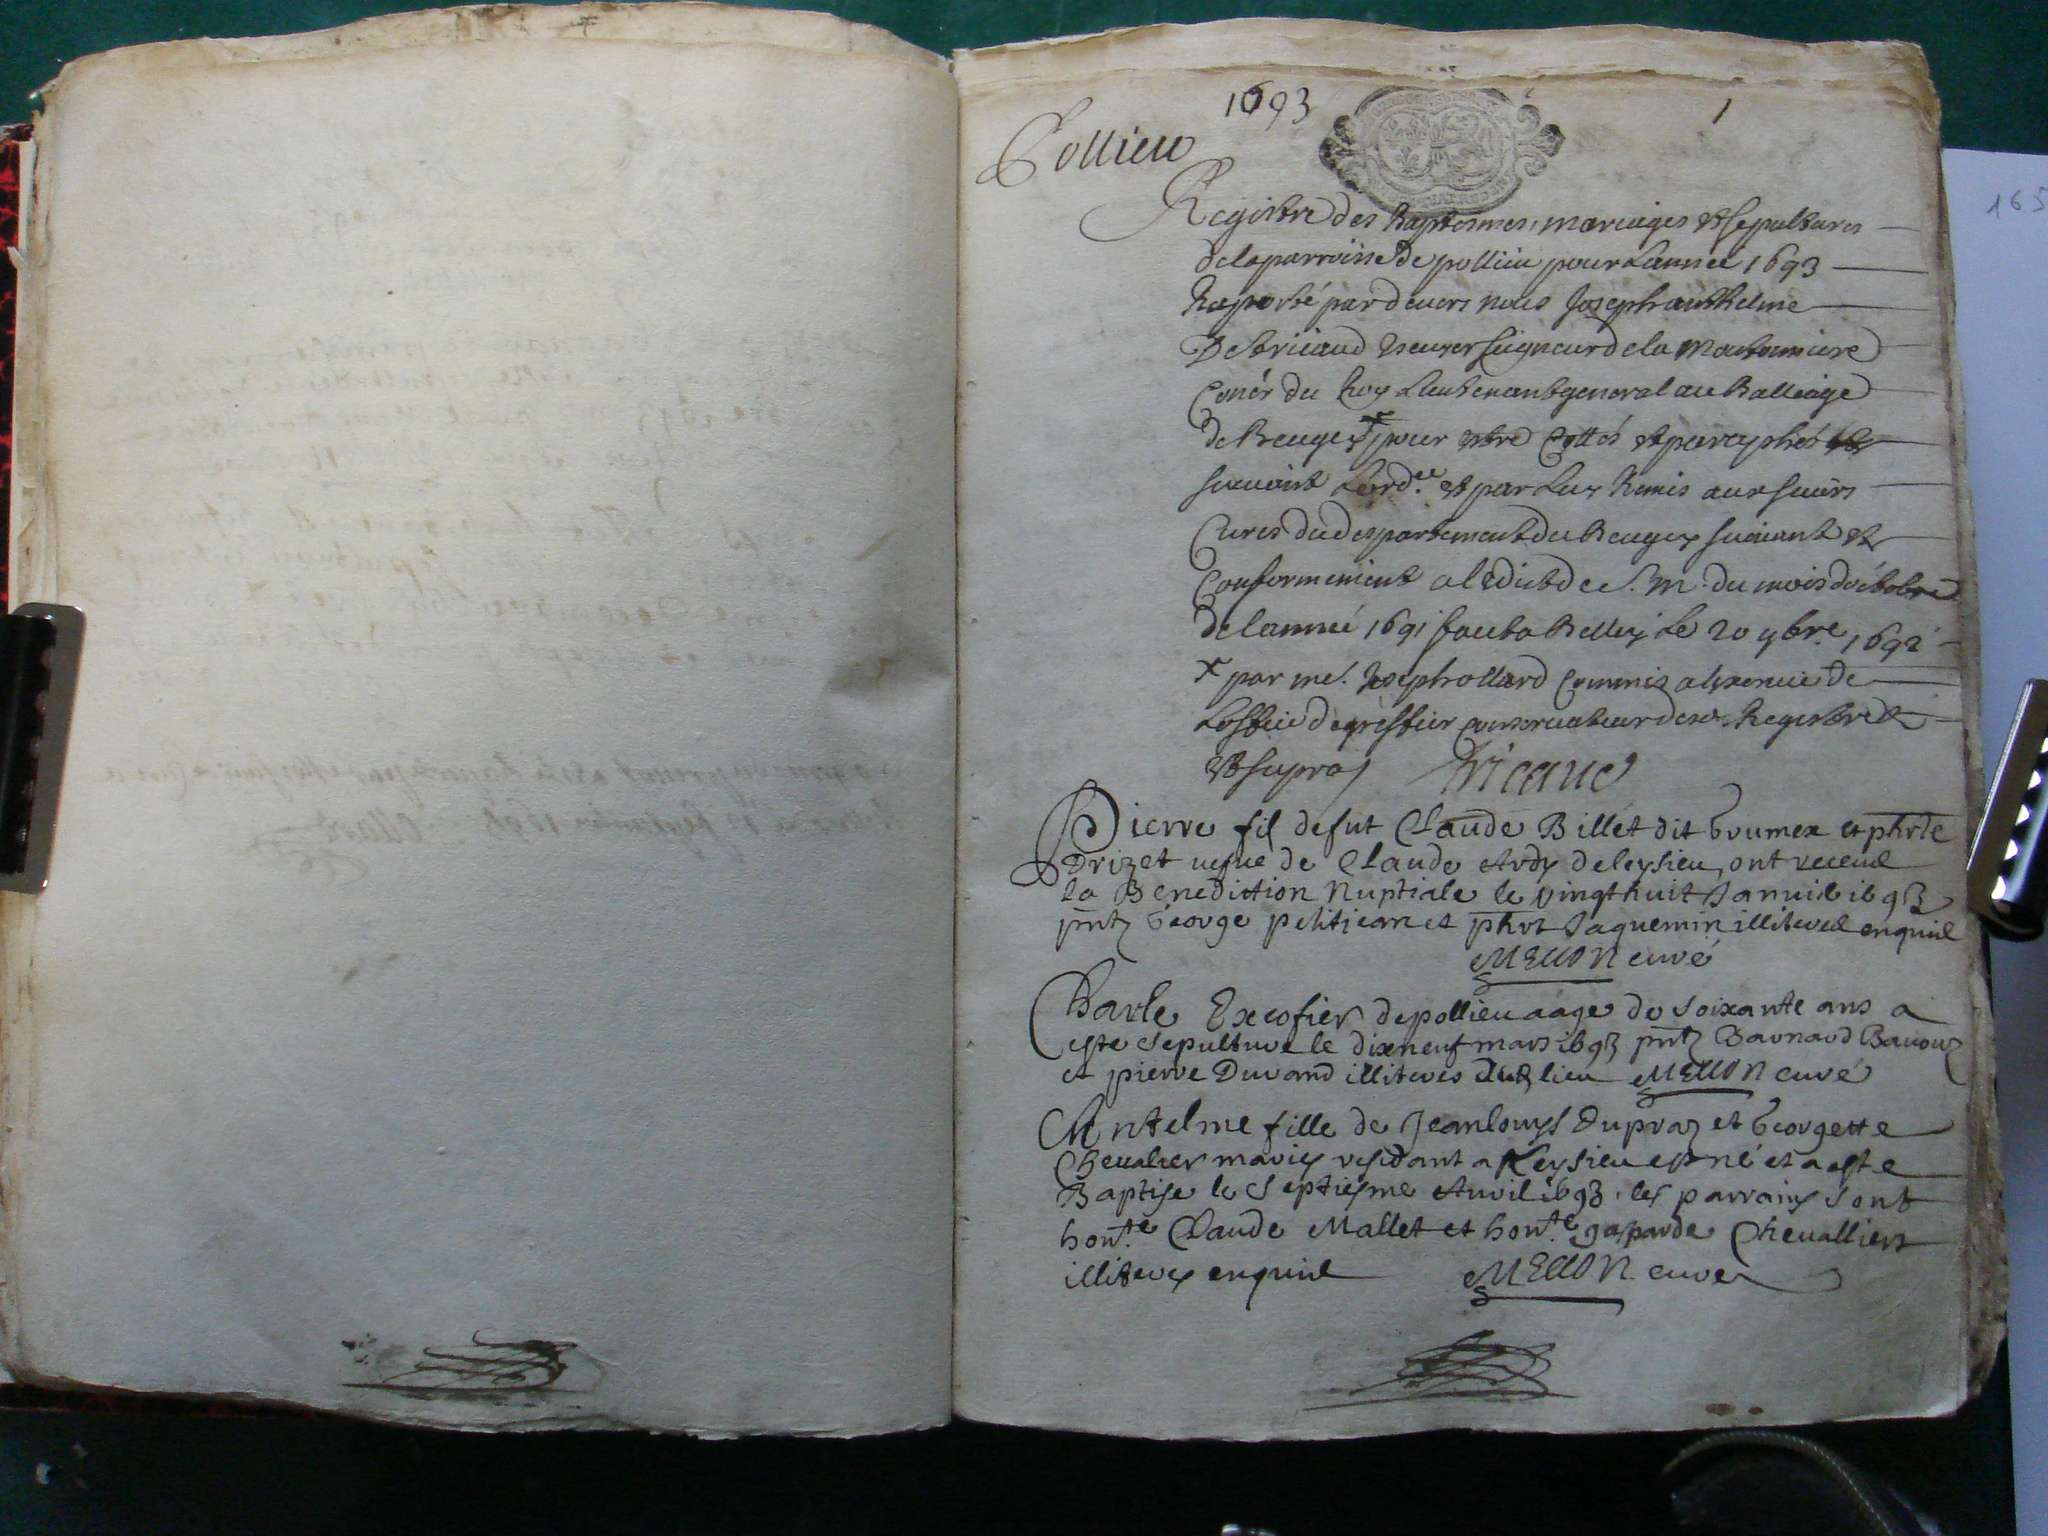 1693
1
Pollieu
Registre des Baptesmes, mariages et sepultures
de la parroisse de pollieu pour Lannee 1693
Raporté pardevers nous Joseph anthelme
De tricaud escuyer seigneur de la
Coner du Roy Lieutenant general au Balliage
de Beugey x pour estre Cottés et paraphés
suivant Lord.ce et par Luy Remis aux sieurs
Cures du despartement du Beugey suivant et
Conformement a lédict de S. M. du mois doctobre
de lannée 1691 fait a Belley Le 20 9bre 1692
x par me. Joseph ollard Commis a lexercice de
Loffice de greffier conservateur desd. Registres
et supra Tricaud
Pierre fil de fut Claude Billet dit et phrte
Drizet vefue de Claude Ardy de leysieu, ont receue
la Benediction Nuptiale le vingthuit Januié 1693
pntz George petitjean et phrt Jaquemin illiteres enquis
Mellon curé
Charle Excofier de pollieu aage de soixante ans a
este sepulture le dixneuf mars 1693 pntz Barnard
et pierre Durand illiteres dud. lieu Mellon curé
Antelme fille de Jeanlouys Dupraz et Georgette
Chevalier mariés residant a Leysieu est né et a este
Baptise le Septiesme Avril 1693. les parrains sont
hon.te Claude Mallet et hon.te gasparde Chevallier
illiteres enquis Mellon curé
165